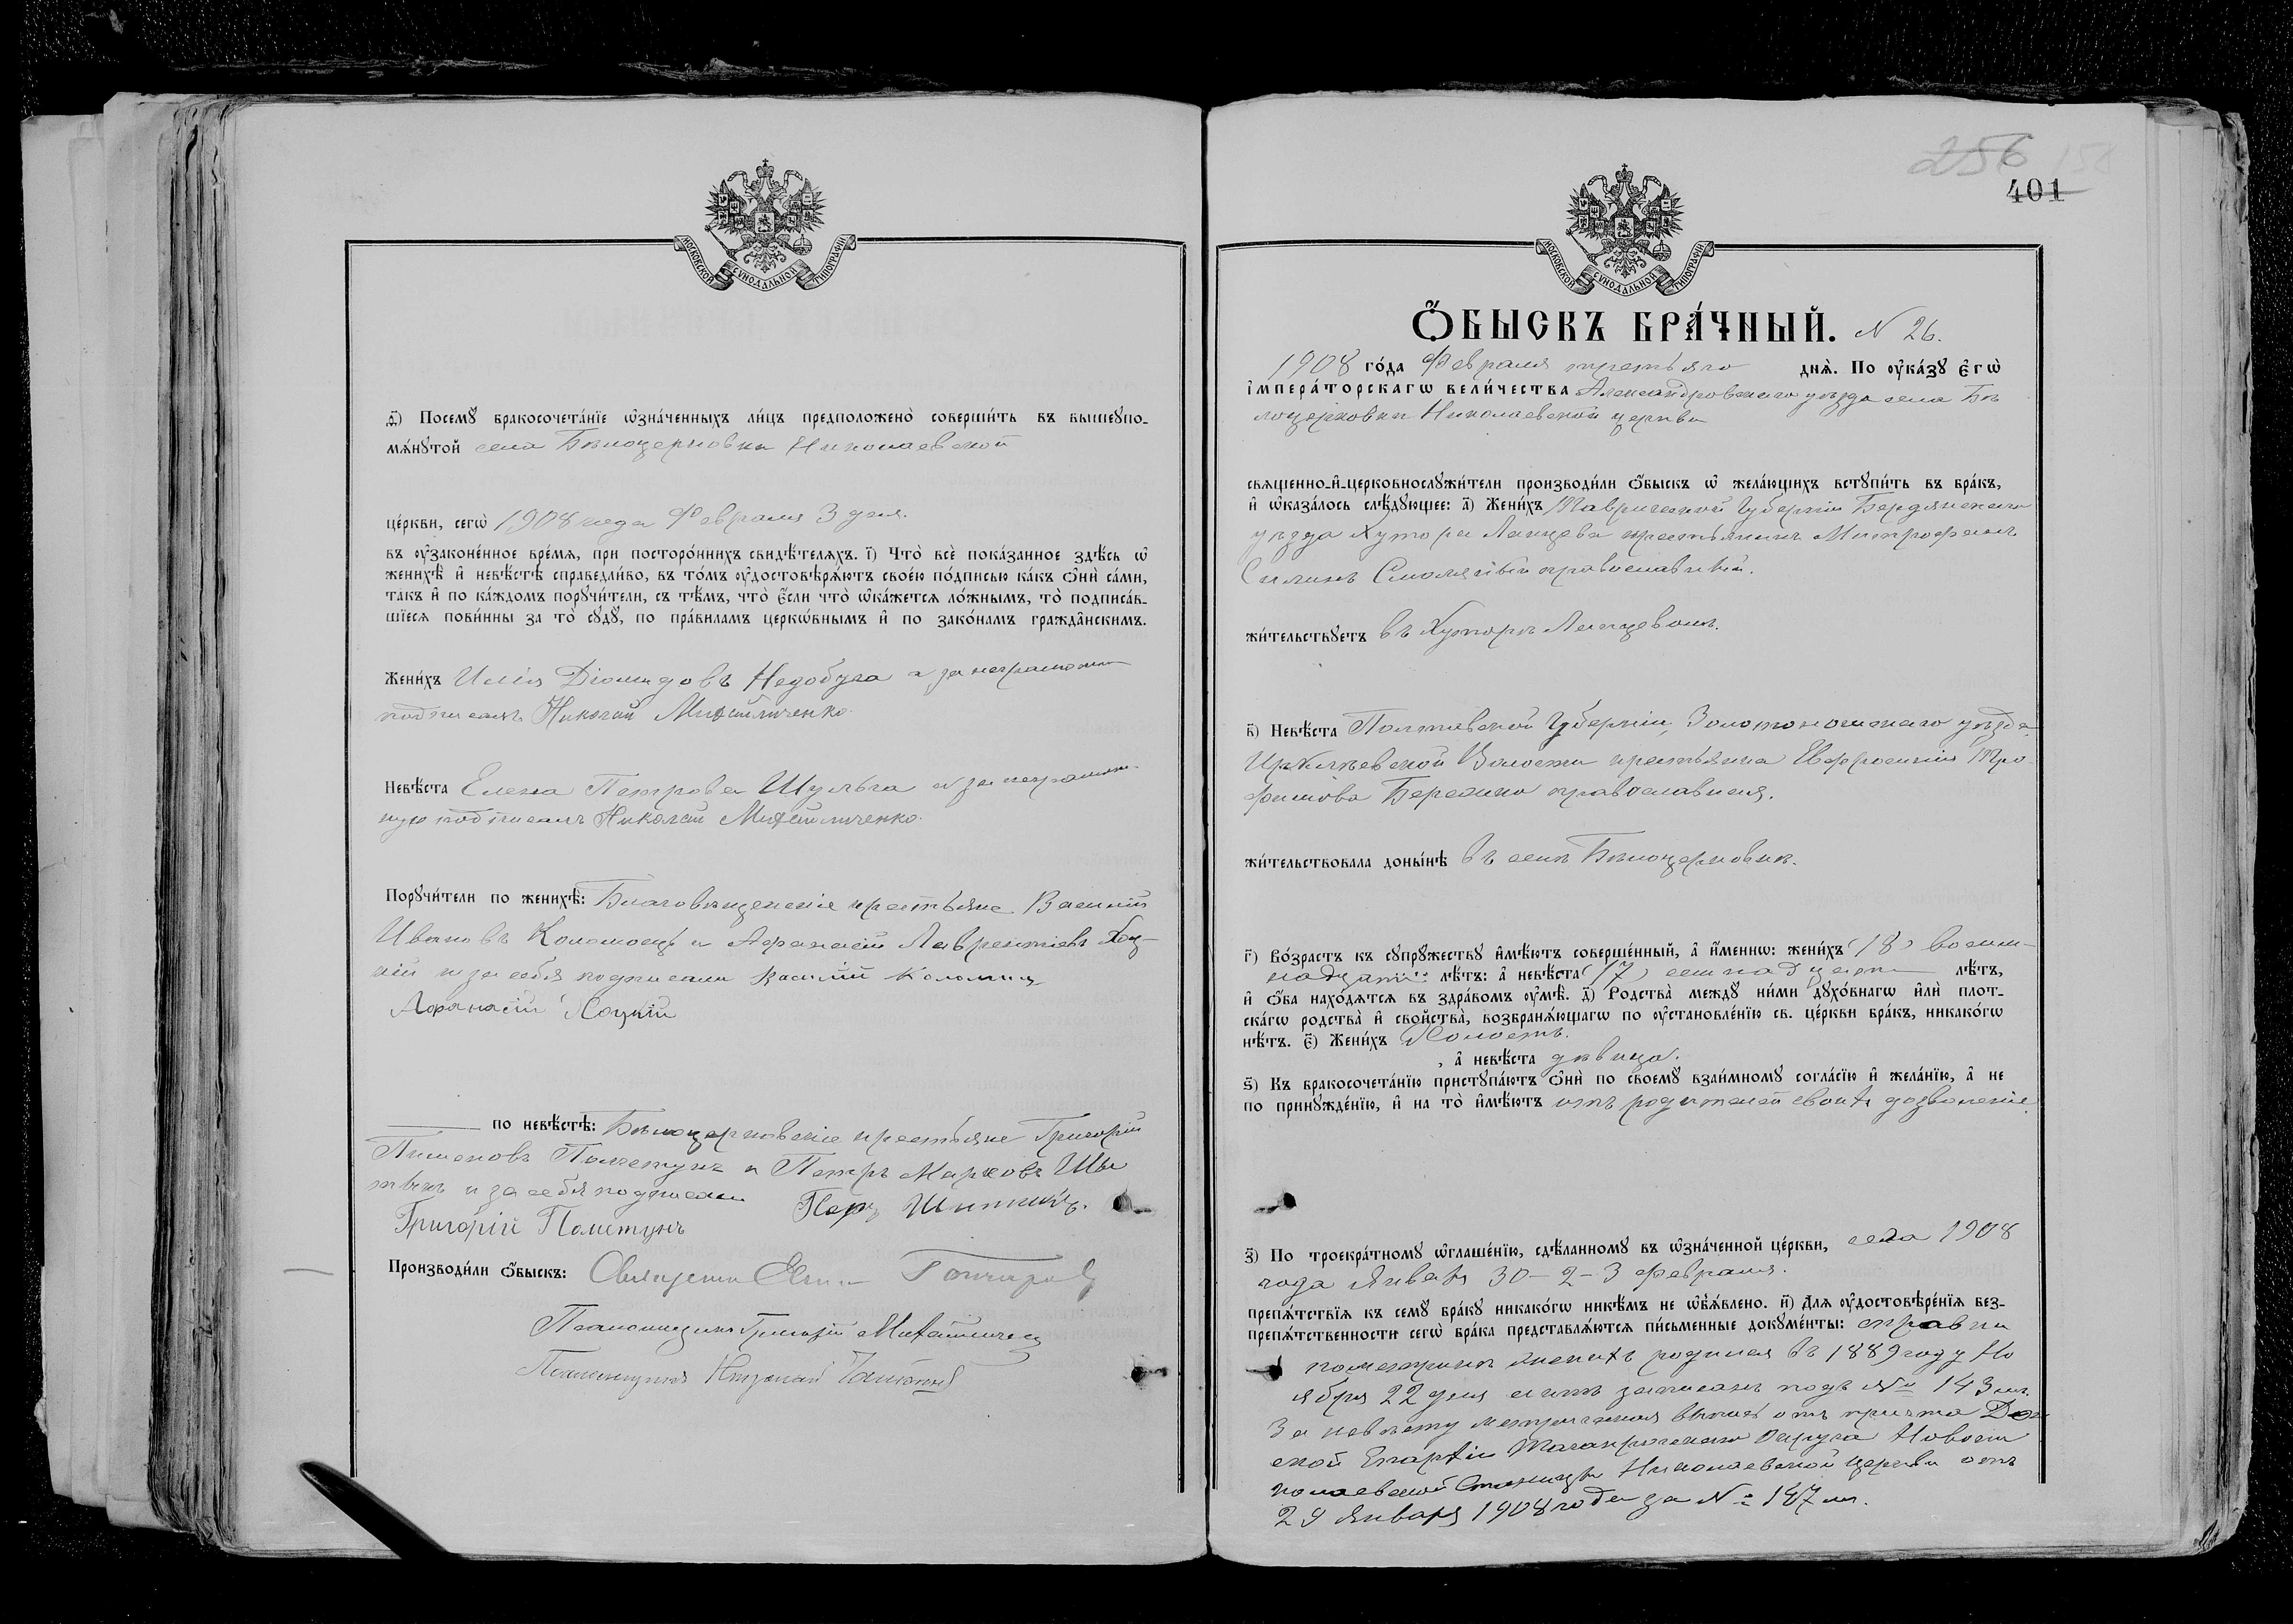 МОСКОВСКОЙ СѴНОДАЛЬНОЙ ТИПОГРАФІИ
д҃) Посемꙋ бракосочета́нїе ѡ҆зна́ченныхъ ли́цъ предположено̀ соверши́ть въ вышеупо-
мѧ́нꙋтой села Бѣлоцерковки Николаевской
це́ркви, сегѡ̀ 1908 года Февраля 3 дня.
въ оу҆зако́не́нное вре́мѧ, при посторо́ннихъ свидѣ́телѧхъ. і҃) Что̀ всѐ пока́занное здѣ́сь ѡ҆
женихѣ̀ и҆ невѣ́стѣ справедли́во, въ то́мъ оу҆достовѣрѧ́ютъ свое́ю по́дписью ка́къ ѻ҆нѝ са́ми,
та́къ и҆ по ка́ждомъ порꙋчи́тели, съ тѣ́мъ, что̀ є҆́сли что̀ ѡ҆ка́жетсѧ ло́жнымъ, то̀ подписа́в-
шїесѧ пови́нны за то̀ сꙋдꙋ̀, по пра́виламъ церкѡ́внымъ и҆ по зако́намъ гражда̑нскимъ.
Жени́хъ Илія Діомидовъ Недобуга а за неграмотн
подписалъ Николай Михайличенко.
Невѣ́ста Елена Петрова Шульга а за неграмот
ную подписалъ Николай Михайличенко.
Порꙋчи́тели по женихѣ̀: Благовѣщенскіе крестьяне Василій
Ивановъ Коломоецъ и Афанасій Лаврентіевъ Хоц-
кій и за себя подписали Васили Коломиц
Афанасій Хоцкій
по невѣ́стѣ: Бѣлоцерковскіе крестьяне Григорій
Пименовъ Пометунъ и Петръ Марковъ Шы
ткинъ и за себя подписали Петръ Шиткинъ.
Григорій Пометунъ
Производи́ли ѻ҆́быскъ: Священникъ Гончаровъ
Псаломщикъ Григорій Михайличен
Псаломщикъ
256
401
МОСКОВСКОЙ СѴНОДАЛЬНОЙ ТИПОГРАФІИ
Ѻ҆́БЫСКЪ БРА́ЧНЫЙ. N 26.
1908 го́да Февраля третьяго днѧ̀. По оу҆ка́зꙋ є҆гѡ̀
і҆мпера́торскагѡ вели́чества Александровскаго уѣзда села Бѣ
лоцерковки Николаевской церкви
свѧщенно-и҆-церковнослꙋжи́тели производи́ли ѻ҆́быскъ ѡ҆ жела́ющихъ встꙋпи́ть въ бра́къ,
и҆ ѡ҆каза́лось слѣ́дꙋющее: а҃) Жени́хъ Таврической Губерніи Бердянскаго
уѣзда Хутора Ланцева крестьянинъ Митрофанъ
Силинъ Смоляный православный.
жи́тельствꙋетъ въ Хуторѣ Ланцевомъ.
в҃) Невѣ́ста Полтавской Губерніи, Золотоношскаго уѣзда
Ирклѣевской Волости крестьянка Евфросинія Тро
фимова Березко православная.
жи́тельствовала доны́нѣ въ селѣ Бѣлоцерковкѣ.
г҃) Во́зрастъ къ сꙋпрꙋ́жествꙋ и҆мѣ́ютъ соверше́нный, а҆ и҆́меннѡ: жени́хъ (18) восем-
надцати лѣ́тъ: а҆ невѣ́ста (17) семнадцати лѣ́тъ,
и҆ ѻ҆́ба нахо́дѧтсѧ въ здра́вомъ оу҆мѣ̀. д҃) Родства̀ между ни́ми дꙋхо́внагѡ и҆лѝ плот-
ска́гѡ родства̀ и҆ сво́йства̀, возбранѧ́ющагѡ по оу҆становле́нїю св. це́ркви бра́къ, никако́гѡ
нѣ́тъ. є҃) Жени́хъ Холостъ.
, а҆ невѣ́ста дѣвица.
ѕ҃) Къ бракосочета́нїю пристꙋпа́ютъ ѻ҆нѝ по своемꙋ̀ взаи́мномꙋ согла́сїю и҆ жела́нїю, а҆ не
по принꙋжде́нїю, и҆ на то̀ и҆мѣ́ютъ отъ родителей своихъ дозволеніе.
з҃) По троекра́тномꙋ ѡ҆глаше́нїю, сдѣ́ланномꙋ въ ѡ҆зна́ченной це́ркви, села 1908
года Января 30 - 2 - 3 Февраля.
препѧ́тствїѧ къ семꙋ̀ бра́кꙋ никако́гѡ никѣ́мъ не ѡ҆б̾ѧ́влено. и҃) Длѧ оу҆достовѣре́нїѧ без-
препѧ́тственности сегѡ̀ бра́ка представлѧ́ютсѧ пи́сьменные докꙋме́нты: справки
по метрикѣ женихъ родился въ 1889 году Но
ября 22 дня актъ записанъ подъ № 143 мъ.
За невѣсту метрическая выпись отъ причта Дон
ской Епархіи Таганрогскаго Округа Новони
колаевской Станицы Николаевской церкви отъ
29 Января 1908 года за № 187 мъ.